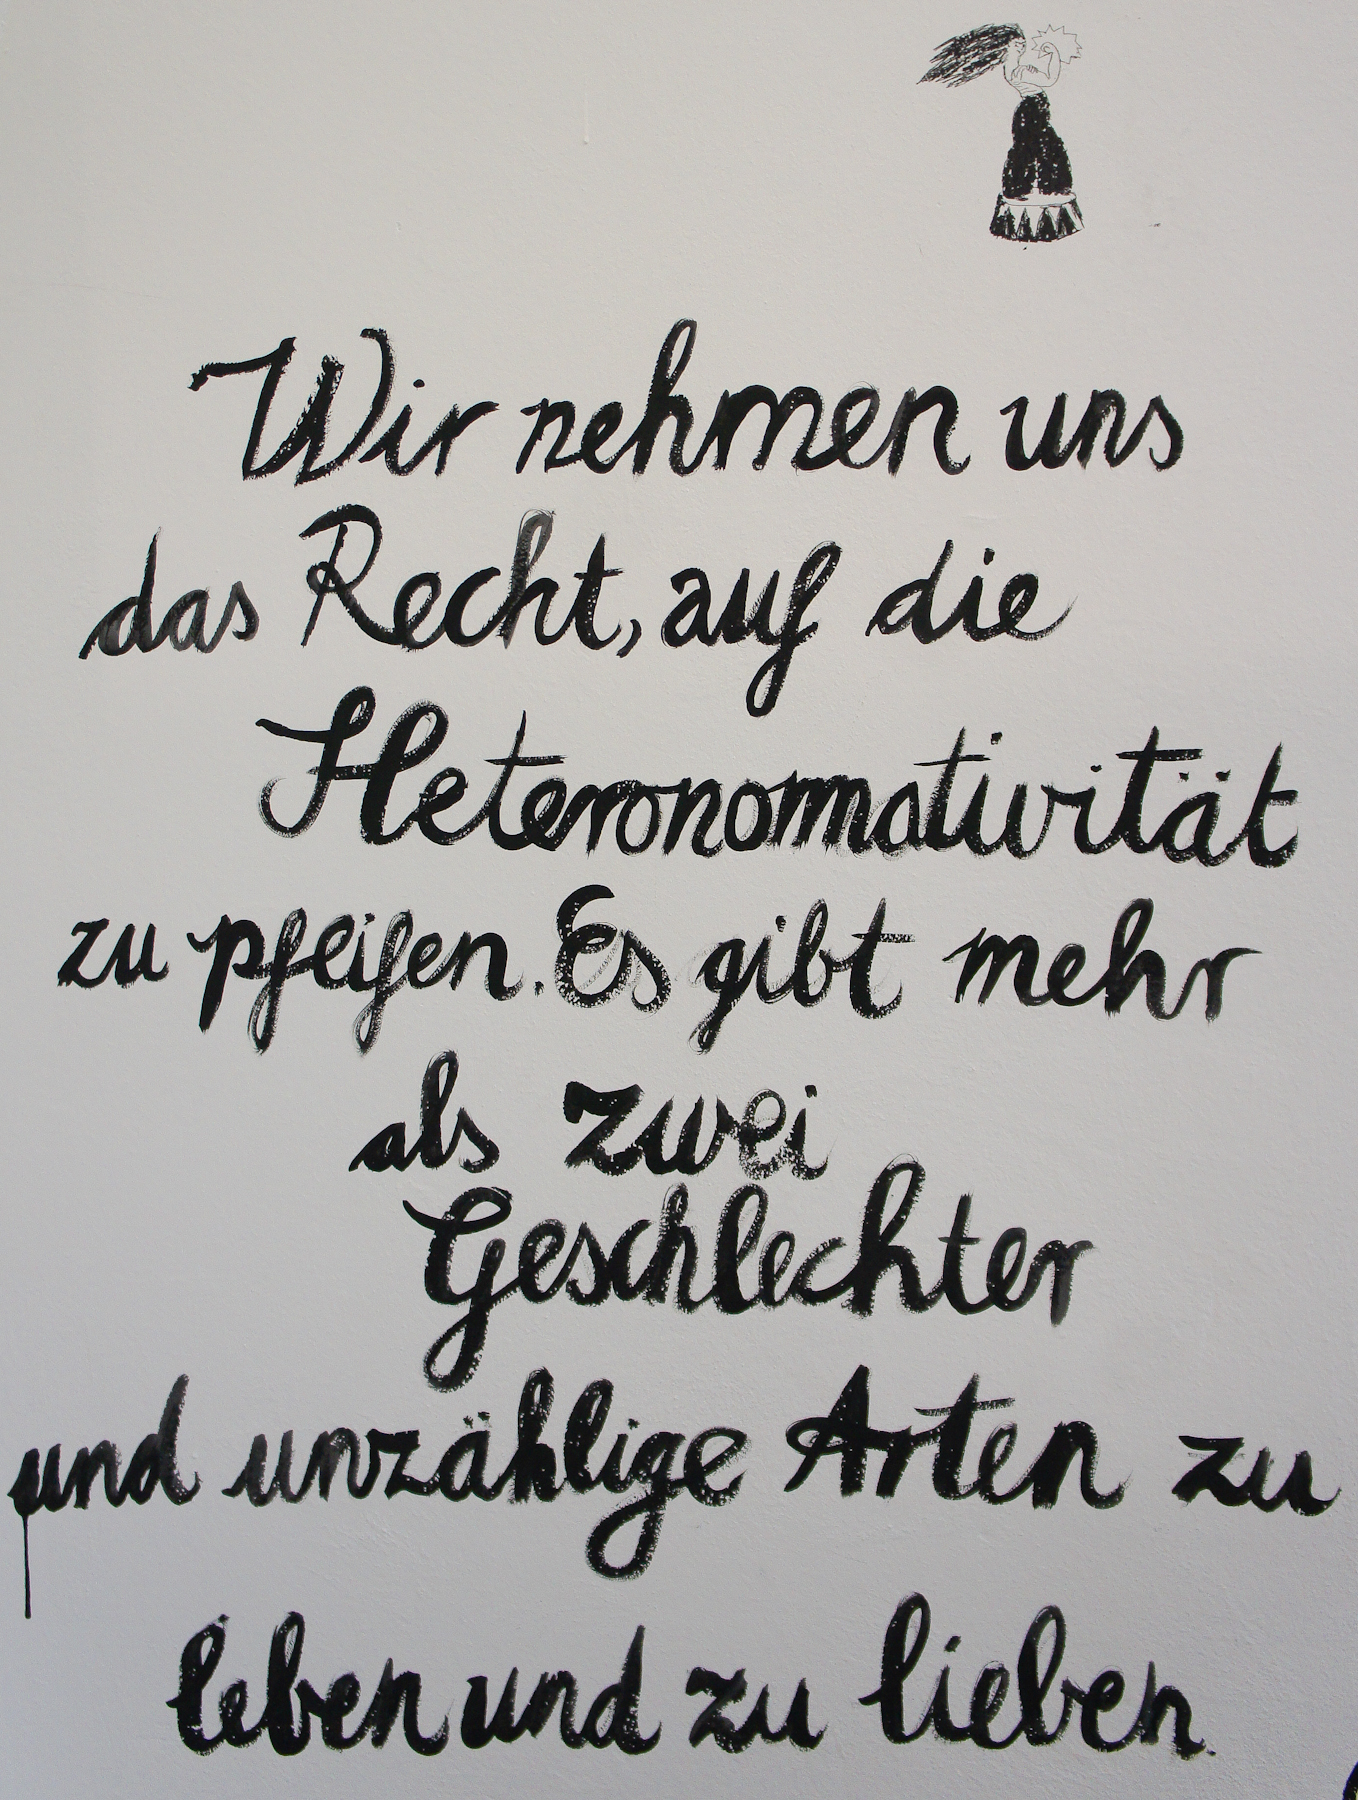 Wir nehmen uns
das Recht, auf die
Heteronormativität
zu pfeifen. Es gibt mehr
als zwei
Geschlechter
und unzählige Arten zu
leben und zu lieben.